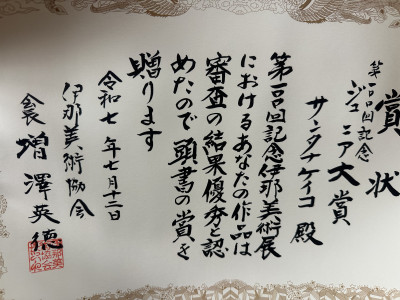 賞状
第一〇〇回記念
ジュニア大賞
サンタナケイコ 殿
第一〇〇回記念伊那美術展
におけるあなたの作品は
審査の結果優秀と認
めたので頭書の賞を
贈ります
令和七年七月十二日
伊那美術協会
会長 増澤英徳